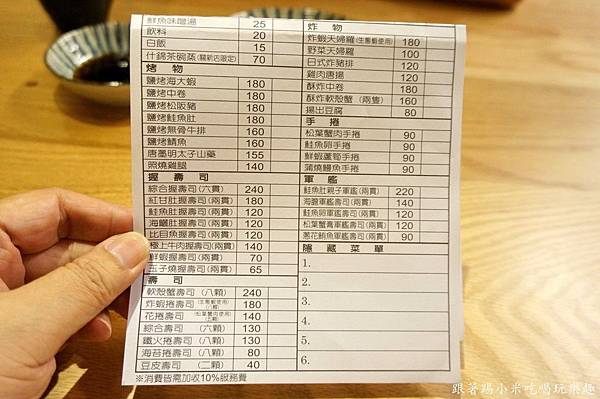 鮮魚味噌湯 25
飲料 20
白飯 15
什錦茶碗蒸(關新店限定) 70
烤 物
鹽烤海大蝦 180
鹽烤中卷 180
鹽烤松阪豬 180
鹽烤鮭魚肚 180
鹽烤無骨牛排 160
鹽烤鯖魚 160
唐墨明太子山藥 155
照燒雞腿 140
握 壽 司
綜合握壽司(六貫) 240
紅甘肚握壽司(兩貫) 180
鮭魚肚握壽司(兩貫) 120
海鱺肚握壽司(兩貫) 120
比目魚握壽司(兩貫) 120
極上牛肉握壽司(兩貫) 140
鮮蝦握壽司(兩貫) 70
玉子燒握壽司(兩貫) 65
壽 司
軟殼蟹壽司 (八顆) 240
炸蝦捲壽司 (生態蝦使用)(八顆) 180
花捲壽司 (松葉蟹肉使用)(五顆) 140
綜合壽司 (六顆) 130
鐵火捲壽司 (八顆) 130
海苔捲壽司 (八顆) 80
豆皮壽司 (二顆) 40
※消費皆需加收10%服務費
炸 物
炸蝦天婦羅(生態蝦使用) 180
野菜天婦羅 100
日式炸豬排 120
雞肉唐揚 120
酥炸中卷 180
酥炸軟殼蟹 (兩隻) 160
揚出豆腐 80
手 捲
松葉蟹肉手捲 90
鮭魚卵手捲 90
鮮蝦蘆筍手捲 90
蒲燒鰻魚手捲 90
軍 艦
鮭魚肚親子軍艦(兩貫) 220
海膽軍艦壽司(兩貫) 140
鮭魚卵軍艦壽司(兩貫) 120
松葉蟹膏軍艦壽司(兩貫) 120
蔥花鮪魚軍艦壽司(兩貫) 90
隱 藏 菜 單
1.
2.
3.
4.
5.
6.
跟著踢小米吃喝玩樂趣